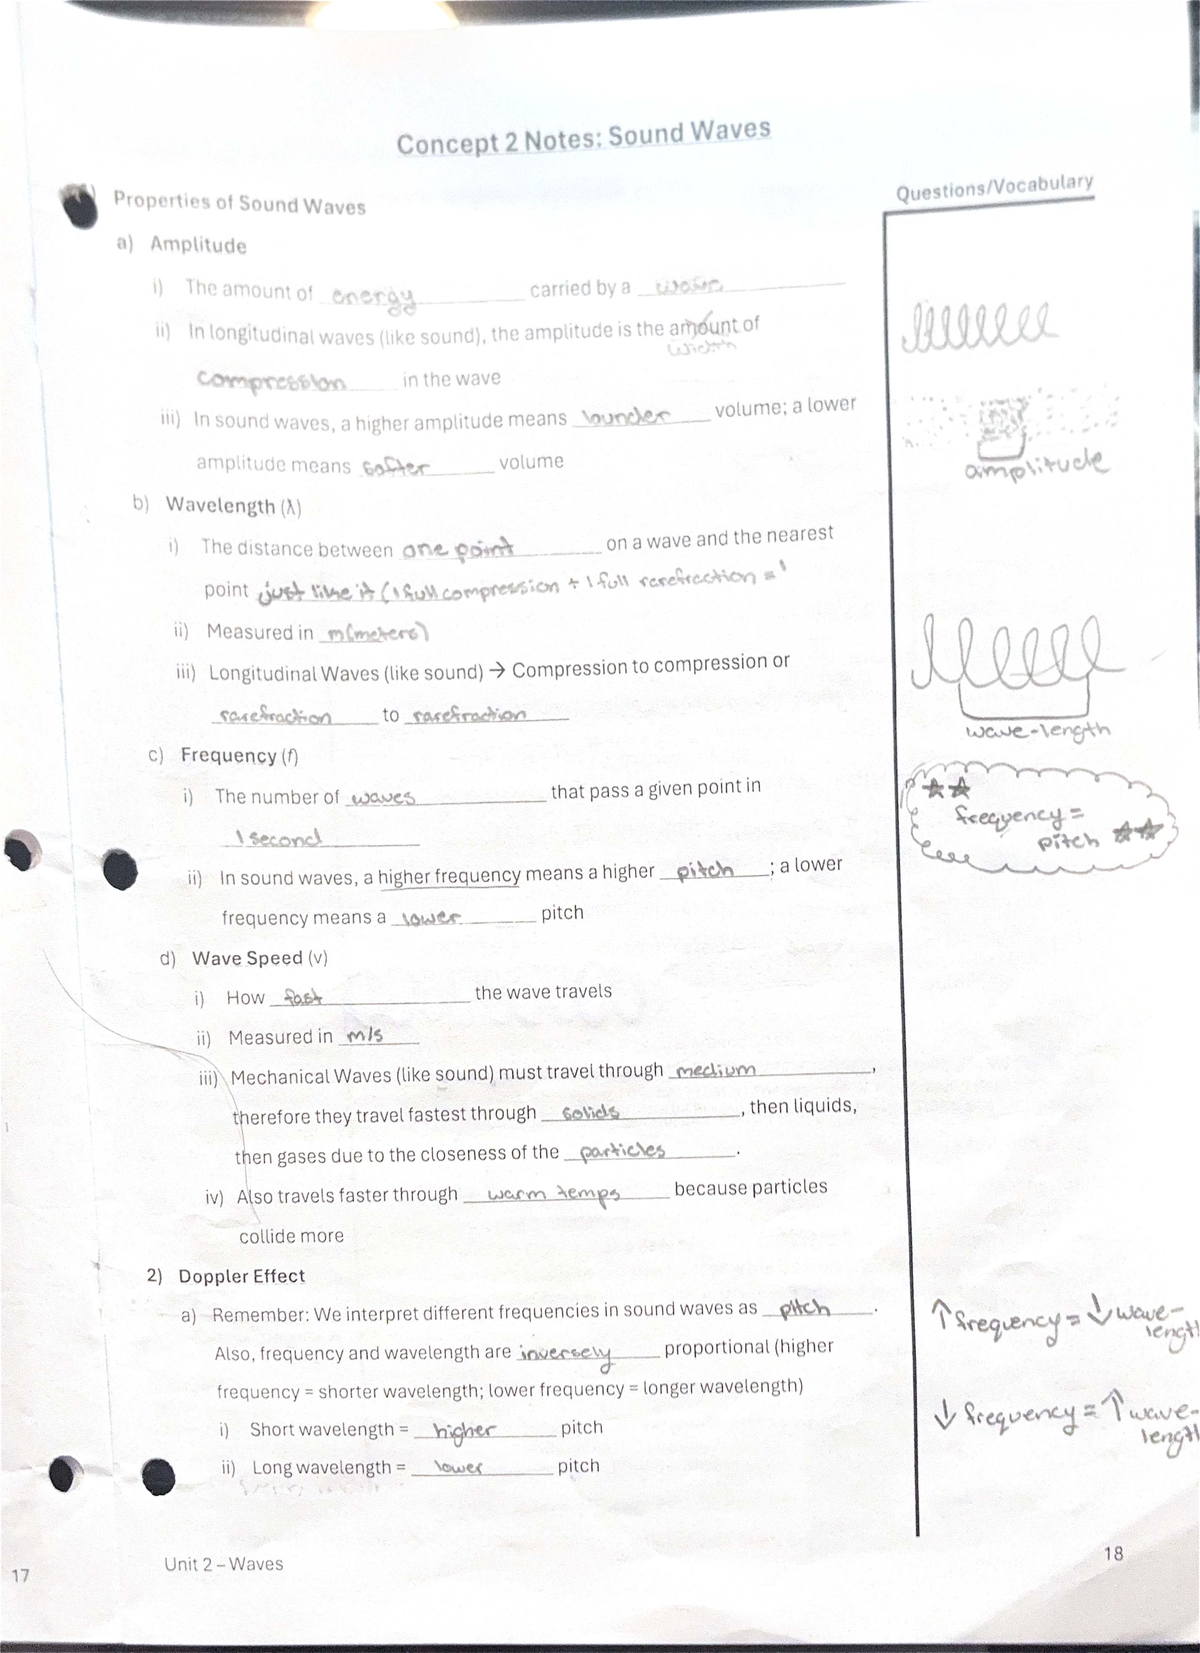 Concept 2 Notes: Sound Waves
Questions/Vocabulary
Properties of Sound Waves
a) Amplitude
i) The amount of energy carried by a wave
ii) In longitudinal waves (like sound), the amplitude is the amount of
width
compression in the wave
iii) In sound waves, a higher amplitude means lounder volume; a lower
amplitude means softer volume
amplitude
b) Wavelength (λ)
i) The distance between one point on a wave and the nearest
point just like it (1 full compression + 1 full rarefraction =
ii) Measured in m(meters)
iii) Longitudinal Waves (like sound) → Compression to compression or
rarefraction to rarefraction
wave-length
c) Frequency (f)
i) The number of waves that pass a given point in
1 second
frequency =
pitch
ii) In sound waves, a higher frequency means a higher pitch; a lower
frequency means a lower pitch
d) Wave Speed (v)
i) How fast the wave travels
ii) Measured in m/s
iii) Mechanical Waves (like sound) must travel through medium,
therefore they travel fastest through solids, then liquids,
then gases due to the closeness of the particles.
iv) Also travels faster through warm temps because particles
collide more
2) Doppler Effect
a) Remember: We interpret different frequencies in sound waves as pitch.
Also, frequency and wavelength are inversely proportional (higher
frequency = shorter wavelength; lower frequency = longer wavelength)
i) Short wavelength = higher pitch
ii) Long wavelength = lower pitch
↑ frequency = ↓ wave-
length
↓ frequency = ↑ wave-
length
Unit 2 – Waves
18
17